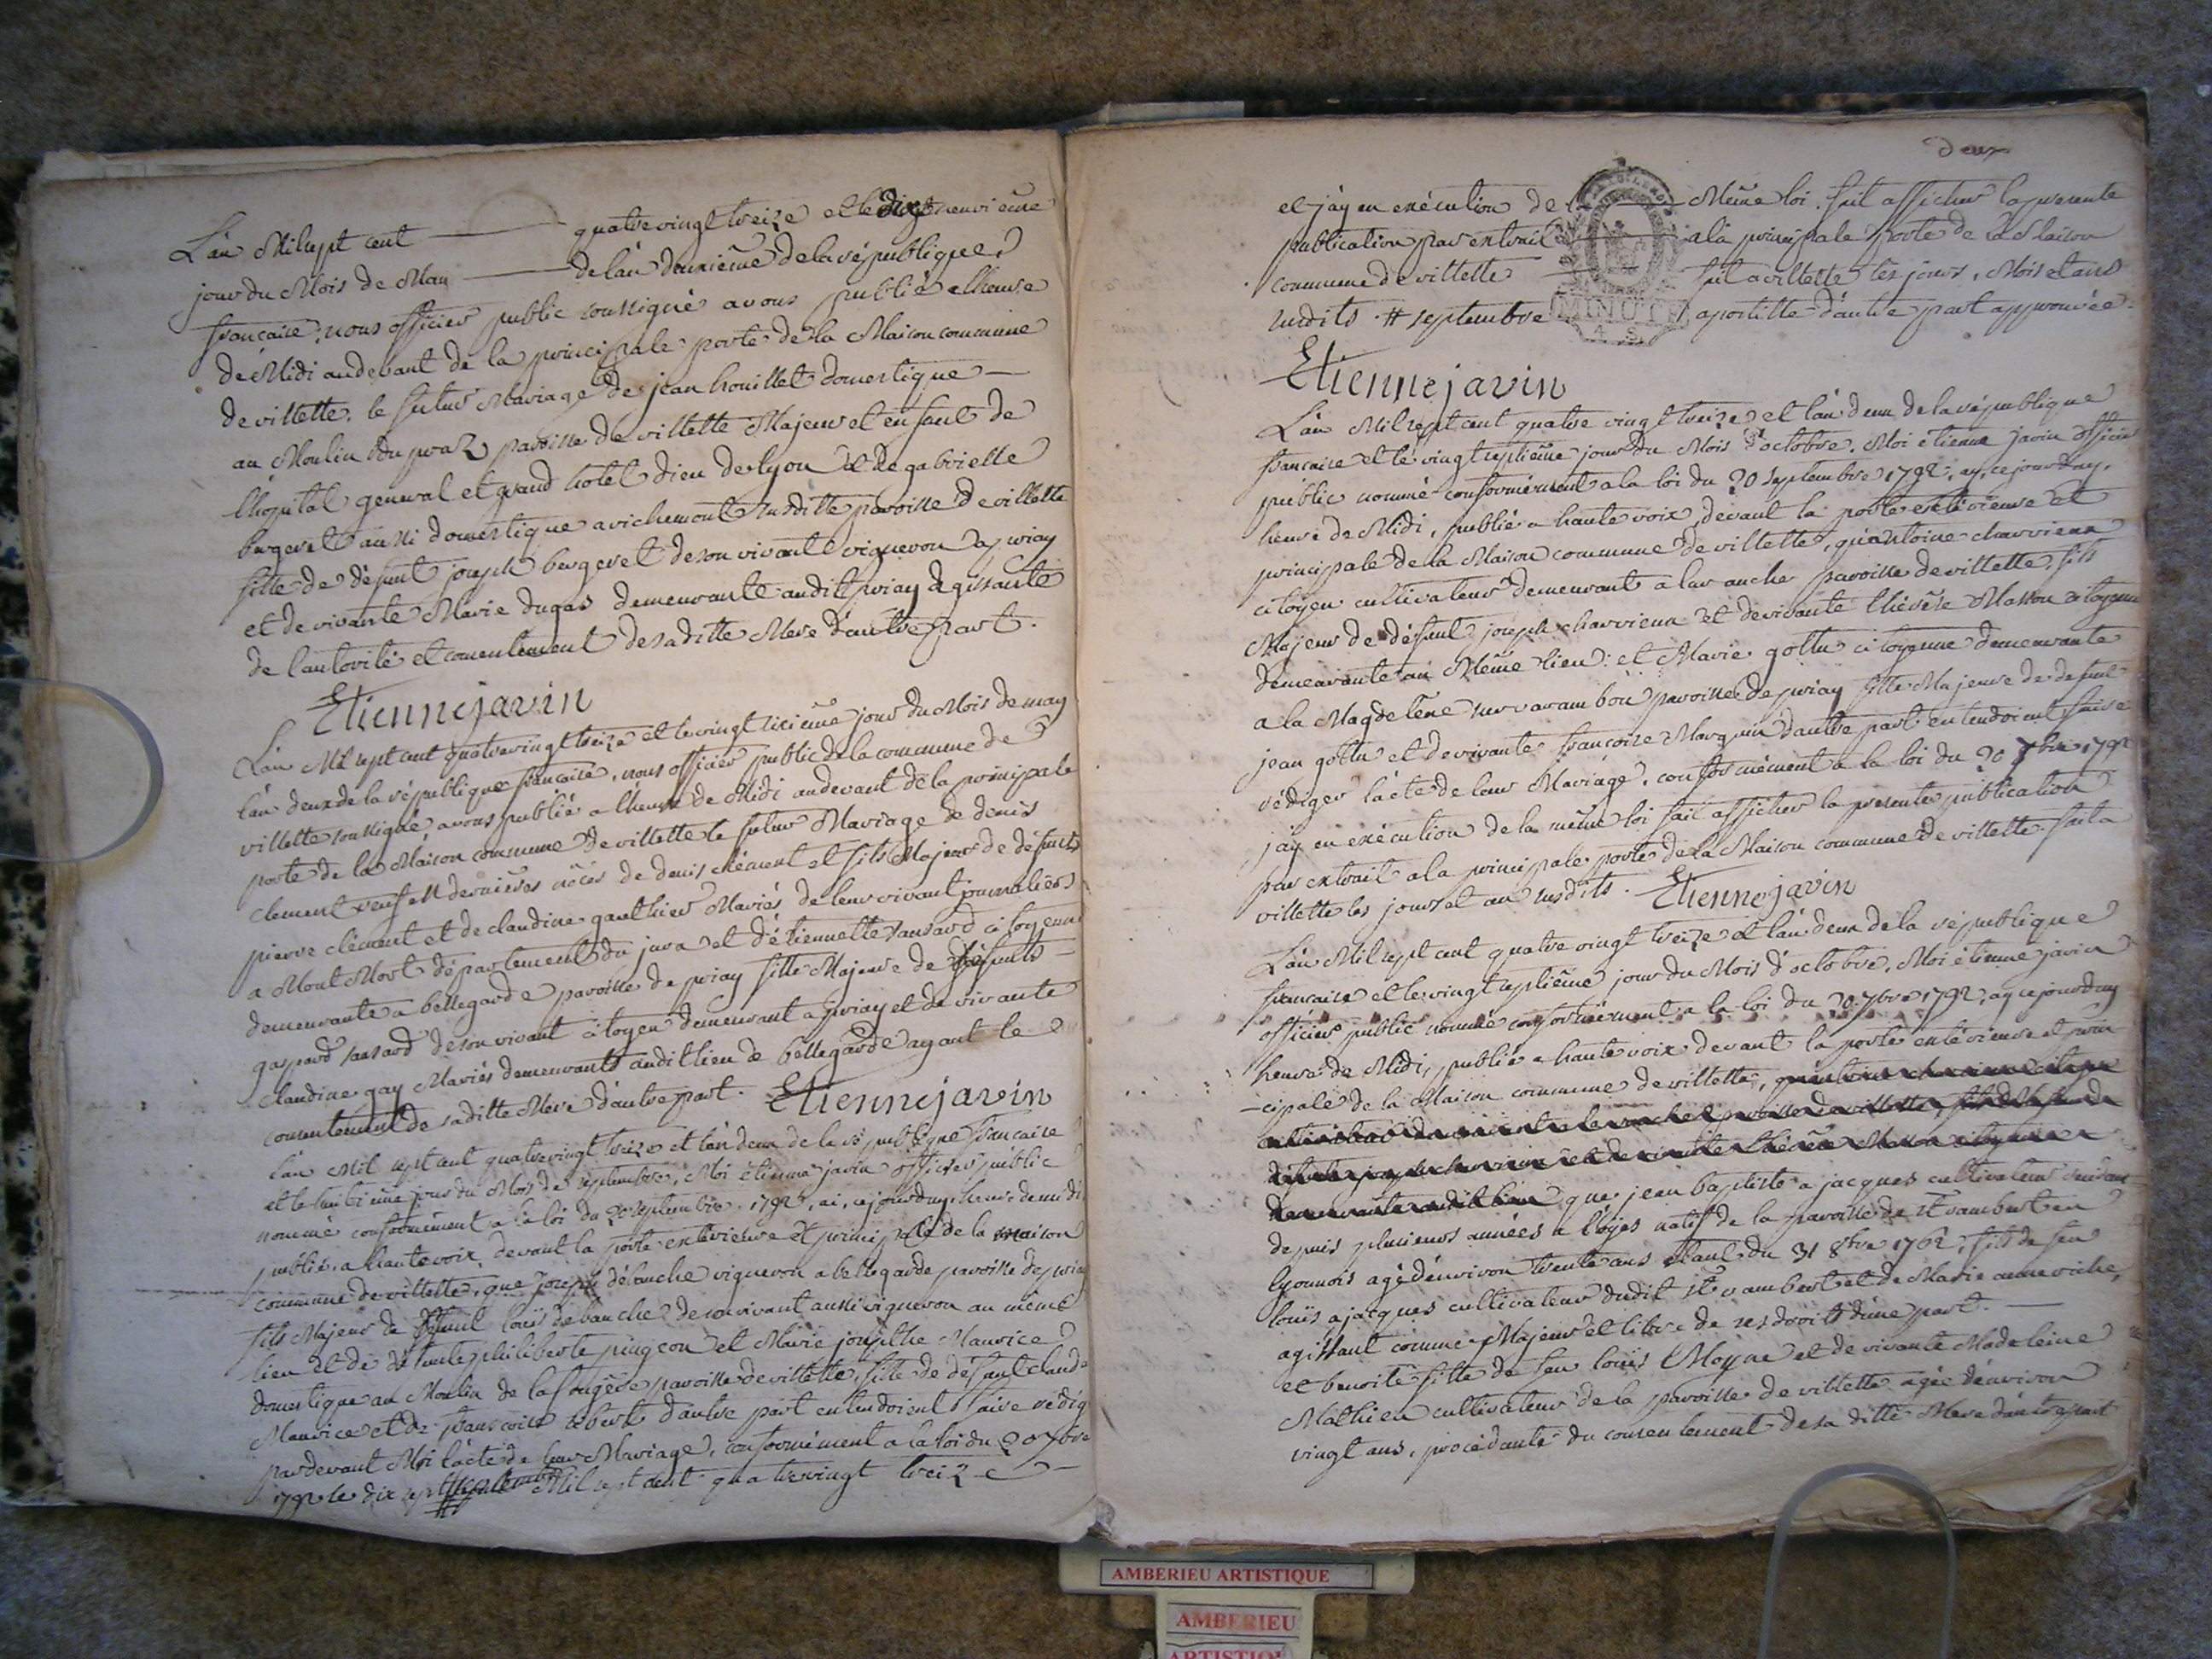 L'an Mil sept cent ——— quatre vingt treize et le dix neuvieme
jour du Mois de May ——— de lan deuxieme de la république
francaise, nous officier public soussigné avons publié a lheure
de Midi audevant de la principale porte de la Maison commune
de villette, le futur Mariage de jean houillet domestique —
au Moulin du praz paroisse de villette Majeur et enfant de
lhopital general et grand hotel dieu de lyon et de gabrielle
bergeret aussi domestique a richemont susditte paroisse de villette
fille de défunt joseph bergeret de son vivant vigneron a priay
et de vivante Marie dugas demeurante audit priay agissante
de lautorité et consentement de sa ditte Mere d'autre part.
Etienne javin
L'an Mil sept cent quatre vingt treize et le vingt sixieme jour du Mois de may
lan deux de la république francaise, nous officier public de la commune de
villette soussigné, avons publié a lheure de Midi audevant de la principale
porte de la Maison commune de villette le futur Mariage de denis
clement veuf en dernieres nôces de denis clément et fils Majeur de défunts
pierre clément et de claudine gauthier Mariés de leur vivant journaliers
a Mont Mort département du jura et d'étiennette sansard citoyenne
demeurante a bellegarde paroisse de priay fille Majeure de défunts —
gaspard sansard de son vivant citoyen demeurant a priay et de vivante
claudine gay Mariés demeurants audit lieu de bellegarde ayant le
consentement de sa ditte Mere d'autre part. Etienne javin
L'an Mil sept cent quatre vingt treize et l'an deux de la république francaise
et le huitieme jour du Mois de septembre, Moi étienne javin officier public
nommé conformément a la loi du 20 septembre 1792, ai, ce jourduy, heure de midi
publié, a haute voix, devant la porte exterieure et principale de la maison
commune de villette, que Joseph débauche vigneron a bellegarde paroisse de priay
fils Majeur de défunt louis debauche de son vivant aussi vigneron au même
lieu et de défunte philiberte pingeon et Marie josepthe Maurice
domestique au Moulin de la fougère paroisse de villette, fille de défunt claude
Maurice et de francoise d'autre part entendoient faire rédiger
pardevant Moi lacte de leur Mariage, conformément a la loi du 20 7bre
1792 le dix sept septembre Mil sept cent quatre vingt treize —
#
deux
et j'ay en exécution de la même loi, fait afficher la presente
publication par extrait a la principale porte de la Maison
commune de villette fait a villette les jours, Mois et ans
susdits. # septembre apostille d'autre part approuvée.
MINUTE
4 S
Etienne javin
L'an Mil sept cent quatre vingt treize et l'an deux de la république
francaise et le vingt septième jour du Mois d'octobre. Moi étienne javin officier
public nommé conformément a la loi du 20 septembre 1792, ay, ce jourduy,
heure de Midi, publié a haute voix, devant la porte extérieure et
principale de la Maison commune de villette, qu'antoine charvieux
citoyen cultivateur demeurant a paroisse de villette, fils
Majeur de défunt joseph charvieux et de vivante thérèse Masson citoyenne
demeurante au Même lieu: et Marie gottu citoyenne demeurante
a la Magdelene sur varambon paroisse de priay fille Majeure de defunt
jean gottu et de vivante francoise Marguin d'autre part. entendoient faire
rédiger lácte de leur Mariage, conformément a la loi du 20 7bre 1792
j'ay en exécution de la même loi fait afficher la presente publication
par extrait a la principale porte de la Maison commune de villette. fait a
villette les jours et an susdits. Etienne javin
L'an Mil sept cent quatre vingt treize et l'an deux de la république
francaise et le vingt septième jour du Mois d'octobre, Moi étienne javin
officier public nommé conformément a la loi du 20 7bre 1792, ay ce jourduy
heure de Midi, publié a haute voix devant la porte extérieure et prin
-cipale de la Maison commune de villette, qu'antoine charvieux citoyen
cultivateur demeurant paroisse de villette, fils Majeur de
défunt joseph charvieux et de vivante thérèse Masson citoyenne
demeurante audit lieu que jean baptiste a jacques cultivateur residant
depuis plusieurs années a loyes natif de la paroisse de st rambert en
lyonnois agé d'environ trente ans etant du 31 8bre 1762, fils de feu
louis ajacques cultivateur dudit st rambert et de Marie anne
agissant comme Majeur et libre de ses droits d'une part. —
et benoite fille de feu louis Moyne et de vivante Madeleine
Mathieu cultivateur de la paroisse de villette agée d'environ
vingt ans, procédante du consentement de sa ditte Mere d'autre part
AMBERIEU ARTISTIQUE
AMBERIEU
ARTISTIQUE